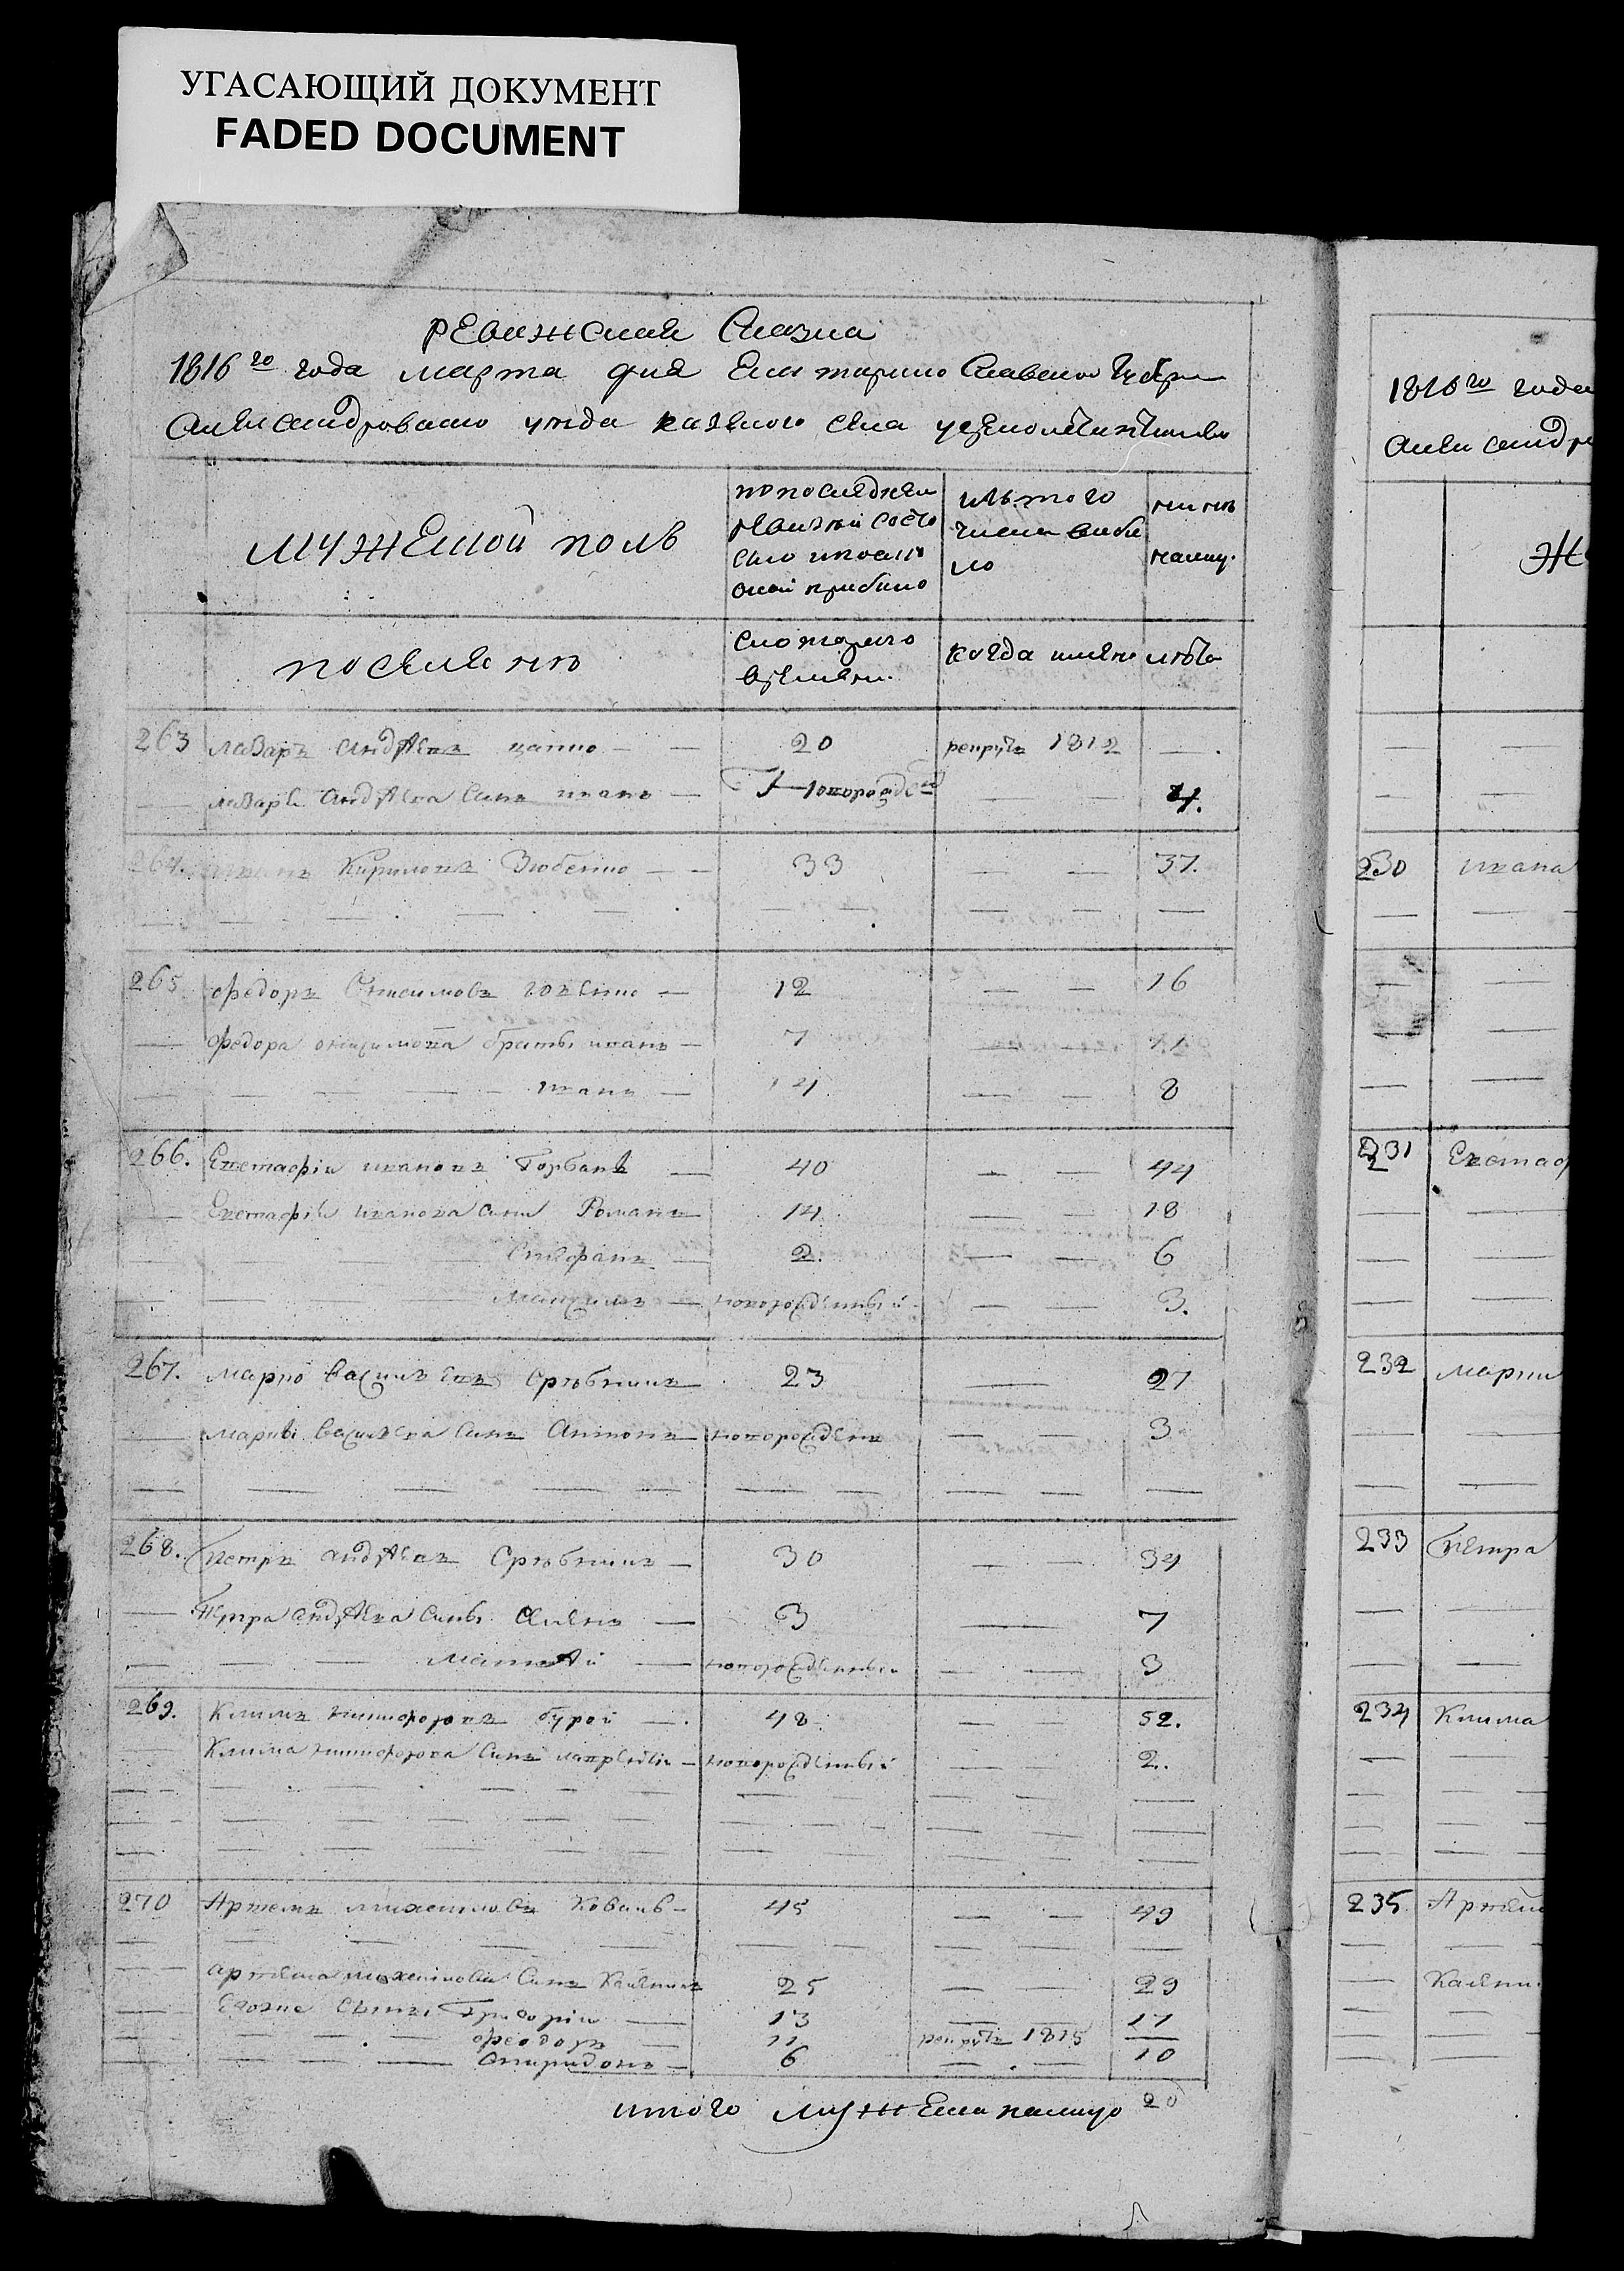 УГАСАЮЩИЙ ДОКУМЕНТ
FADED DOCUMENT
Ревижская Сказка
1816го года марта дня Екатеринославской Губерн
Александровского уезда казеного села
мужеской полъ
по последней ревизии состояло и после оной прибыло
изъ того числа выбыло
ныне налицо
поселяне
когда имянно
лета
263 Лазаръ Андреевъ 20 рекрутъ 1812 — .
Лазаря Андреева Сынъ иванъ — новорожде — — 4.
264. иванъ Кириловъ Зюбенко — — 33 — — 37.
265 Федоръ — 12 — — 16
Федора братья иванъ — 7 — — 11
иванъ — 4 — — 8
266. Евстафiй ивановъ Горбань — 40 — — 44
Евстафiя иванова сыны Романъ 14 — — 18
Стефанъ — 2. — — 6
Максимъ — новорожденный — — 3.
267. Марко Васильевъ Срѣбникъ 23 — 27
Марка Васильева Сынъ Антонъ — новорожденъ — — 3
268. Петръ Андреевъ Срѣбникъ — 30 — — 34
Петра Андреева Сыны — 3 — 7
Матвѣй — новорожденный — — 3
269. Климъ никифоровъ бурой — . 48 — — 52.
Клима никифорова Сынъ лаврентiй — новорожденный — — 2.
270 Артемъ михайловъ Коваль — 45 — — 49
Артема михайлова Сынъ 25 — — 29
Егоже Сыны Григорiй — 13 — 17
Феодоръ — 11 рекрутъ 1815 —
Спиридонъ — 6 — . — 10
итого мужеска налицо 20
1816го года
Александр
Ж
230 ивана
231 Евстаф
232 Марки
233 Петра
234 Клима
235 Артем